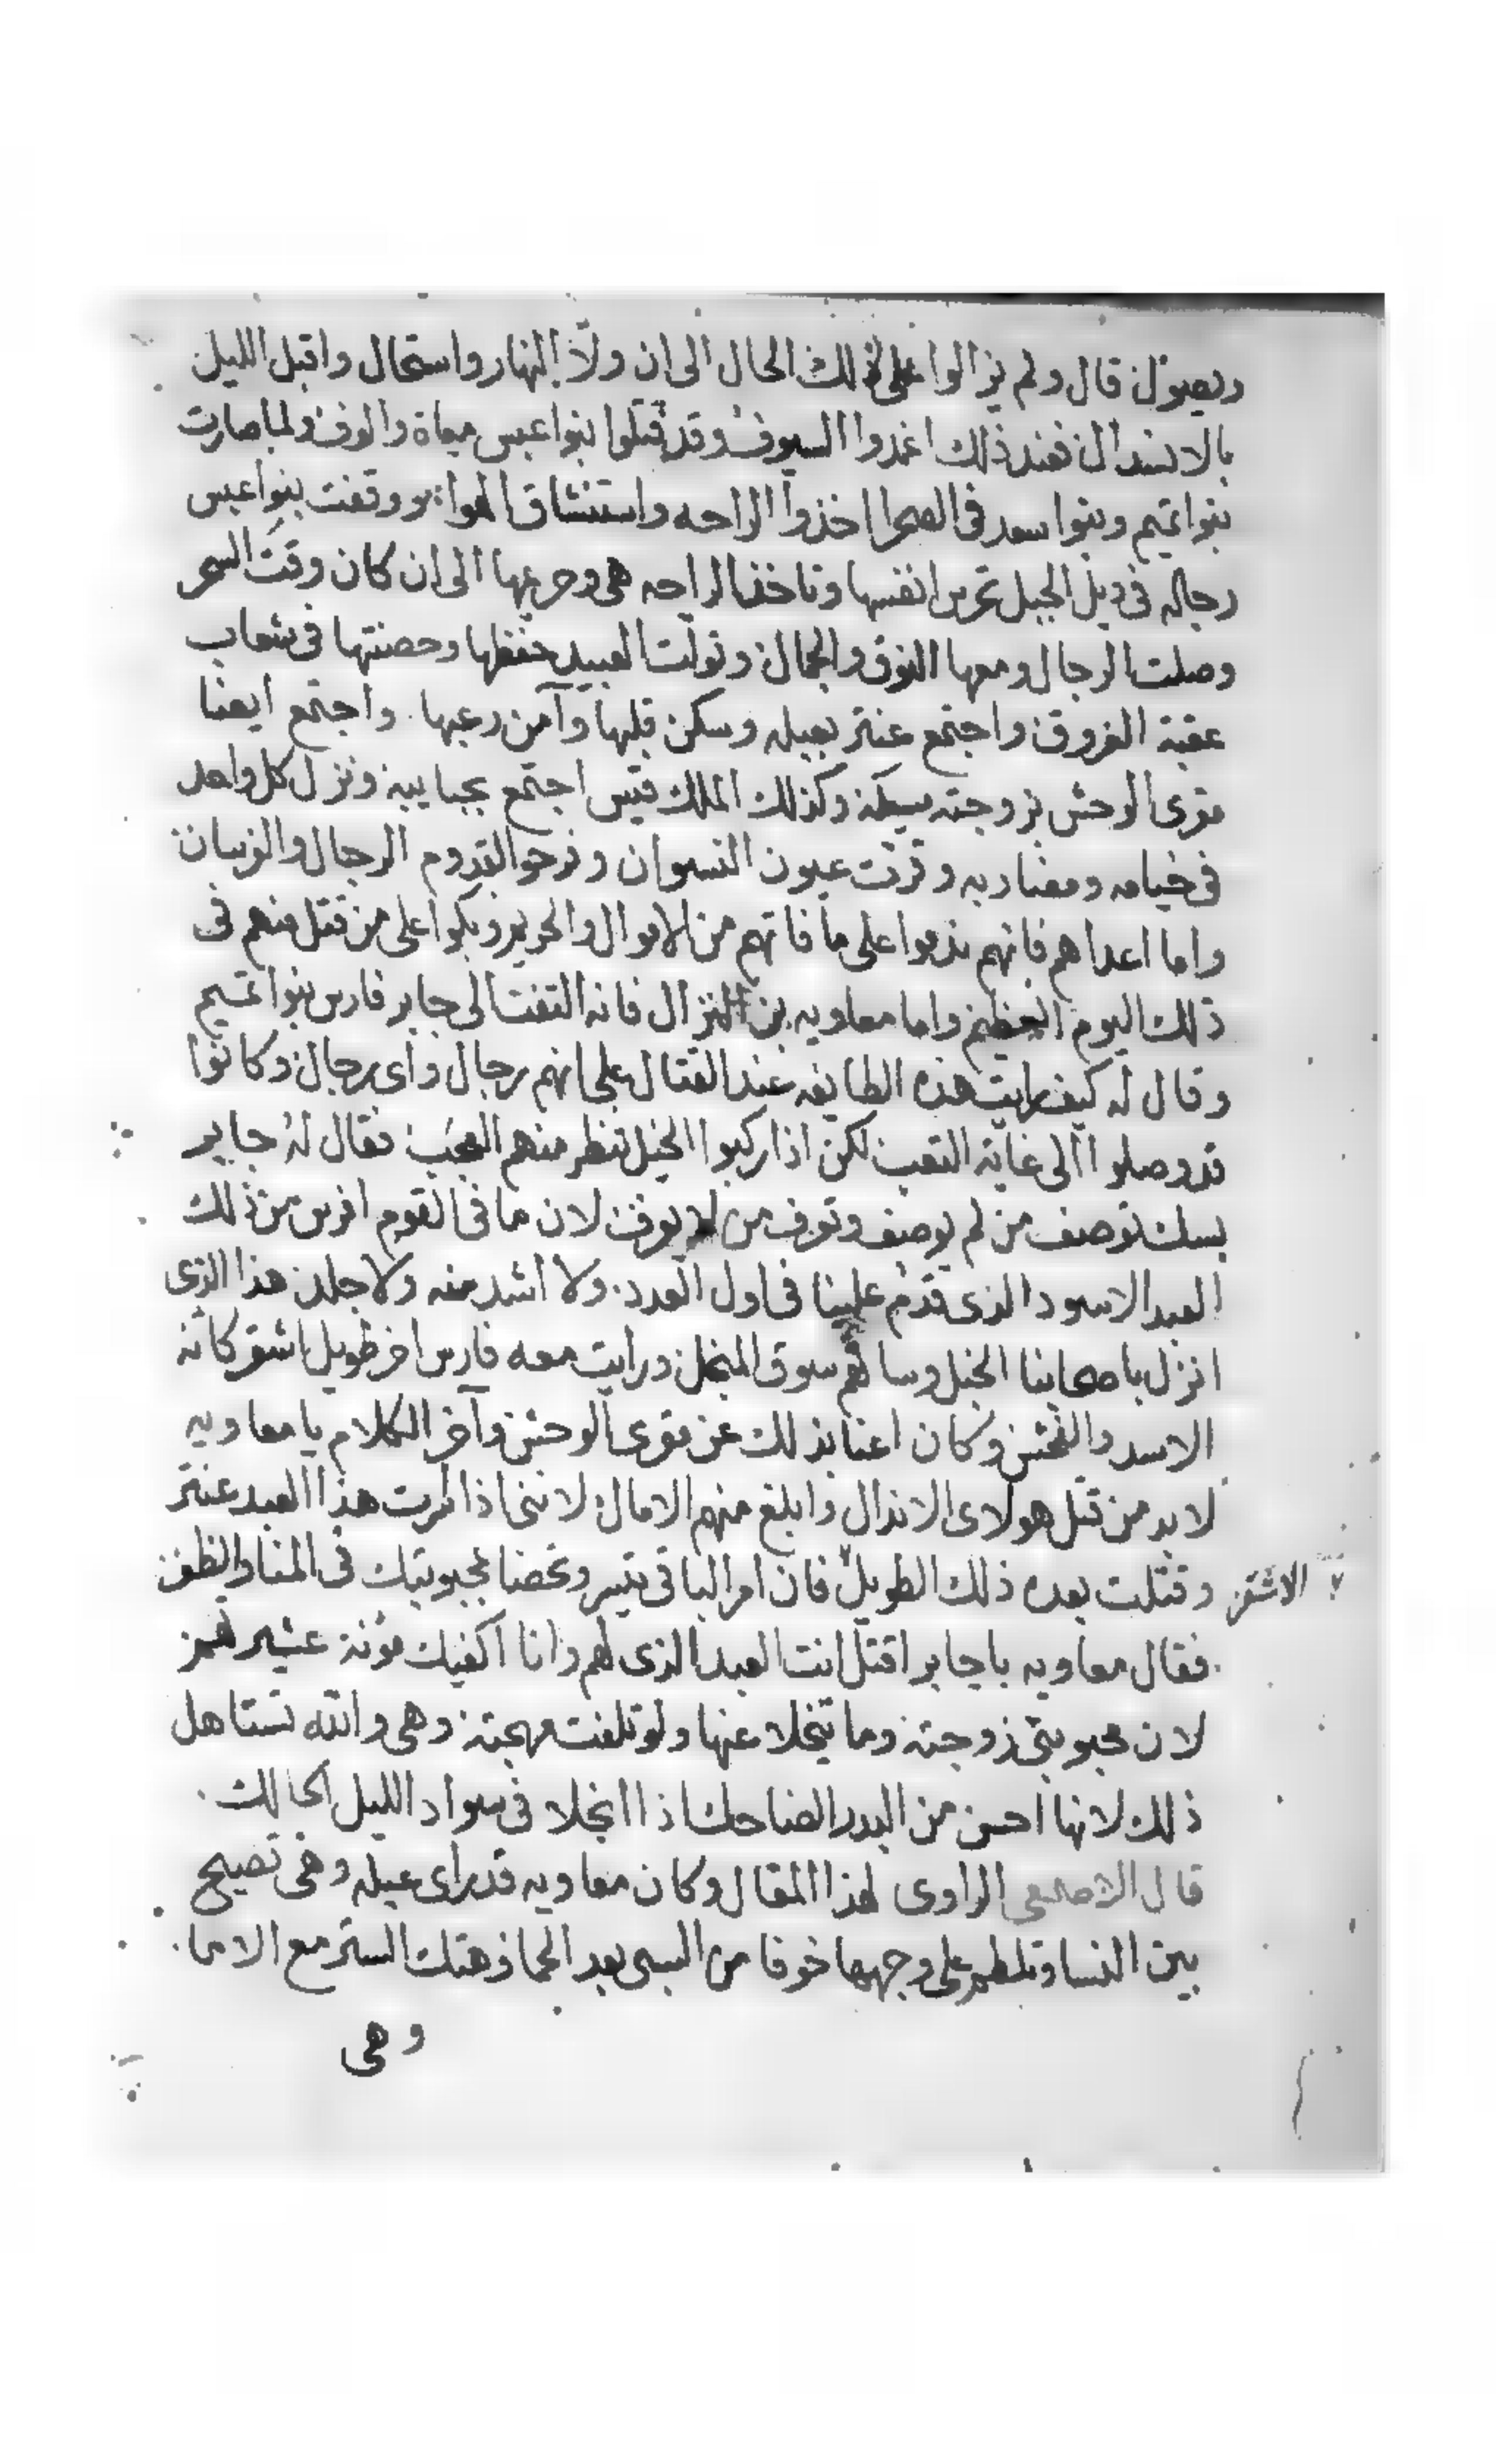 ويصول قال ولم يزالوا على ذلك الحال الى ان ولا النهار واستحال واقبل الليل
بالانسدال فعند ذلك اغمدوا السيوف وقد قتلوا بنوا عبس مياة والوف ولما صارت
بنوا تميم وبنوا سعد في الصحرا اخذوا الراحه واستنشاق الهوا ووقفت بنوا عبس
رجاله في ديل الجبل تحرس انفسها وتاخذ الراحه هي وحريمها الى ان كان وقت السحر
وصلت الرجال ومعها النوق والجمال وتولت العبيد حفظها وحصنتها في شعاب
عقبة الفروق واجتمع عنتر بعبله وسكن قلبها وآمن رعبها واجتمع ايضا
مقرى الوحش بزوجته مسيكة وكذلك الملك قيس اجتمع بحبايبه ونزل كل واحد
في خيامه ومضاربه وقرت عيون النسوان وفرحوا لقدوم الرجال والفرسان
واما اعداهم فانهم ندموا على ما فاتهم من الاموال والحريم وبكوا على من قتل منهم في
ذلك اليوم العظيم واما معاويه بن النزال فانه التفت الى جابر فارس بنوا تميم
وقال له كيف رايت هذه الطايفه عند القتال على انهم رجال واى رجال وكانوا
قد وصلوا الى غاية التعب لكن اذا ركبوا الخيل تنظر منهم العجب فقال له جابر
بسك توصف من لم يوصف وتعرف من لم يعرف لان ما في القوم افرس من ذلك
العبد الاسود الذى قدم علينا في اول العدد ولا اشد منه ولا جلد هذا الذى
انزل باصحابنا الخبل وساقهم سوق المنجل ورايت معه فارس اخر طويل اشقر كانه
الاسد والفحش وكان اعنا بذلك عن مقرى الوحش وآخر الكلام يا معاويه
لا بد من قتل هولاى الاندال وابلغ منهم الامال لانني اذا اسرت هذا العبد عنتر
وقتلت بعده ذلك الطويل فان امر الباقى يتيسر وتحضا بمحبوبتك في المنا والظفر
الاشقر
فقال معاويه يا جابر اقتل انت العبد الذى لهم وانا اكفيك مؤنة عشيرتهم
لان محبوبتى زوجته وما يتخلا عنها ولو تلفت مهجته وهى والله تستاهل
ذلك لانها احسن من البدر الضاحك اذا انجلا في سواد الليل الحالك
قال الاصمعى الراوى لهذا المقال وكان معاويه قد راى عبله وهى تصيح
بين النسا وتلطم على وجهها خوفا من السبى بعد الحما وهتك الستر مع الاما
وهى